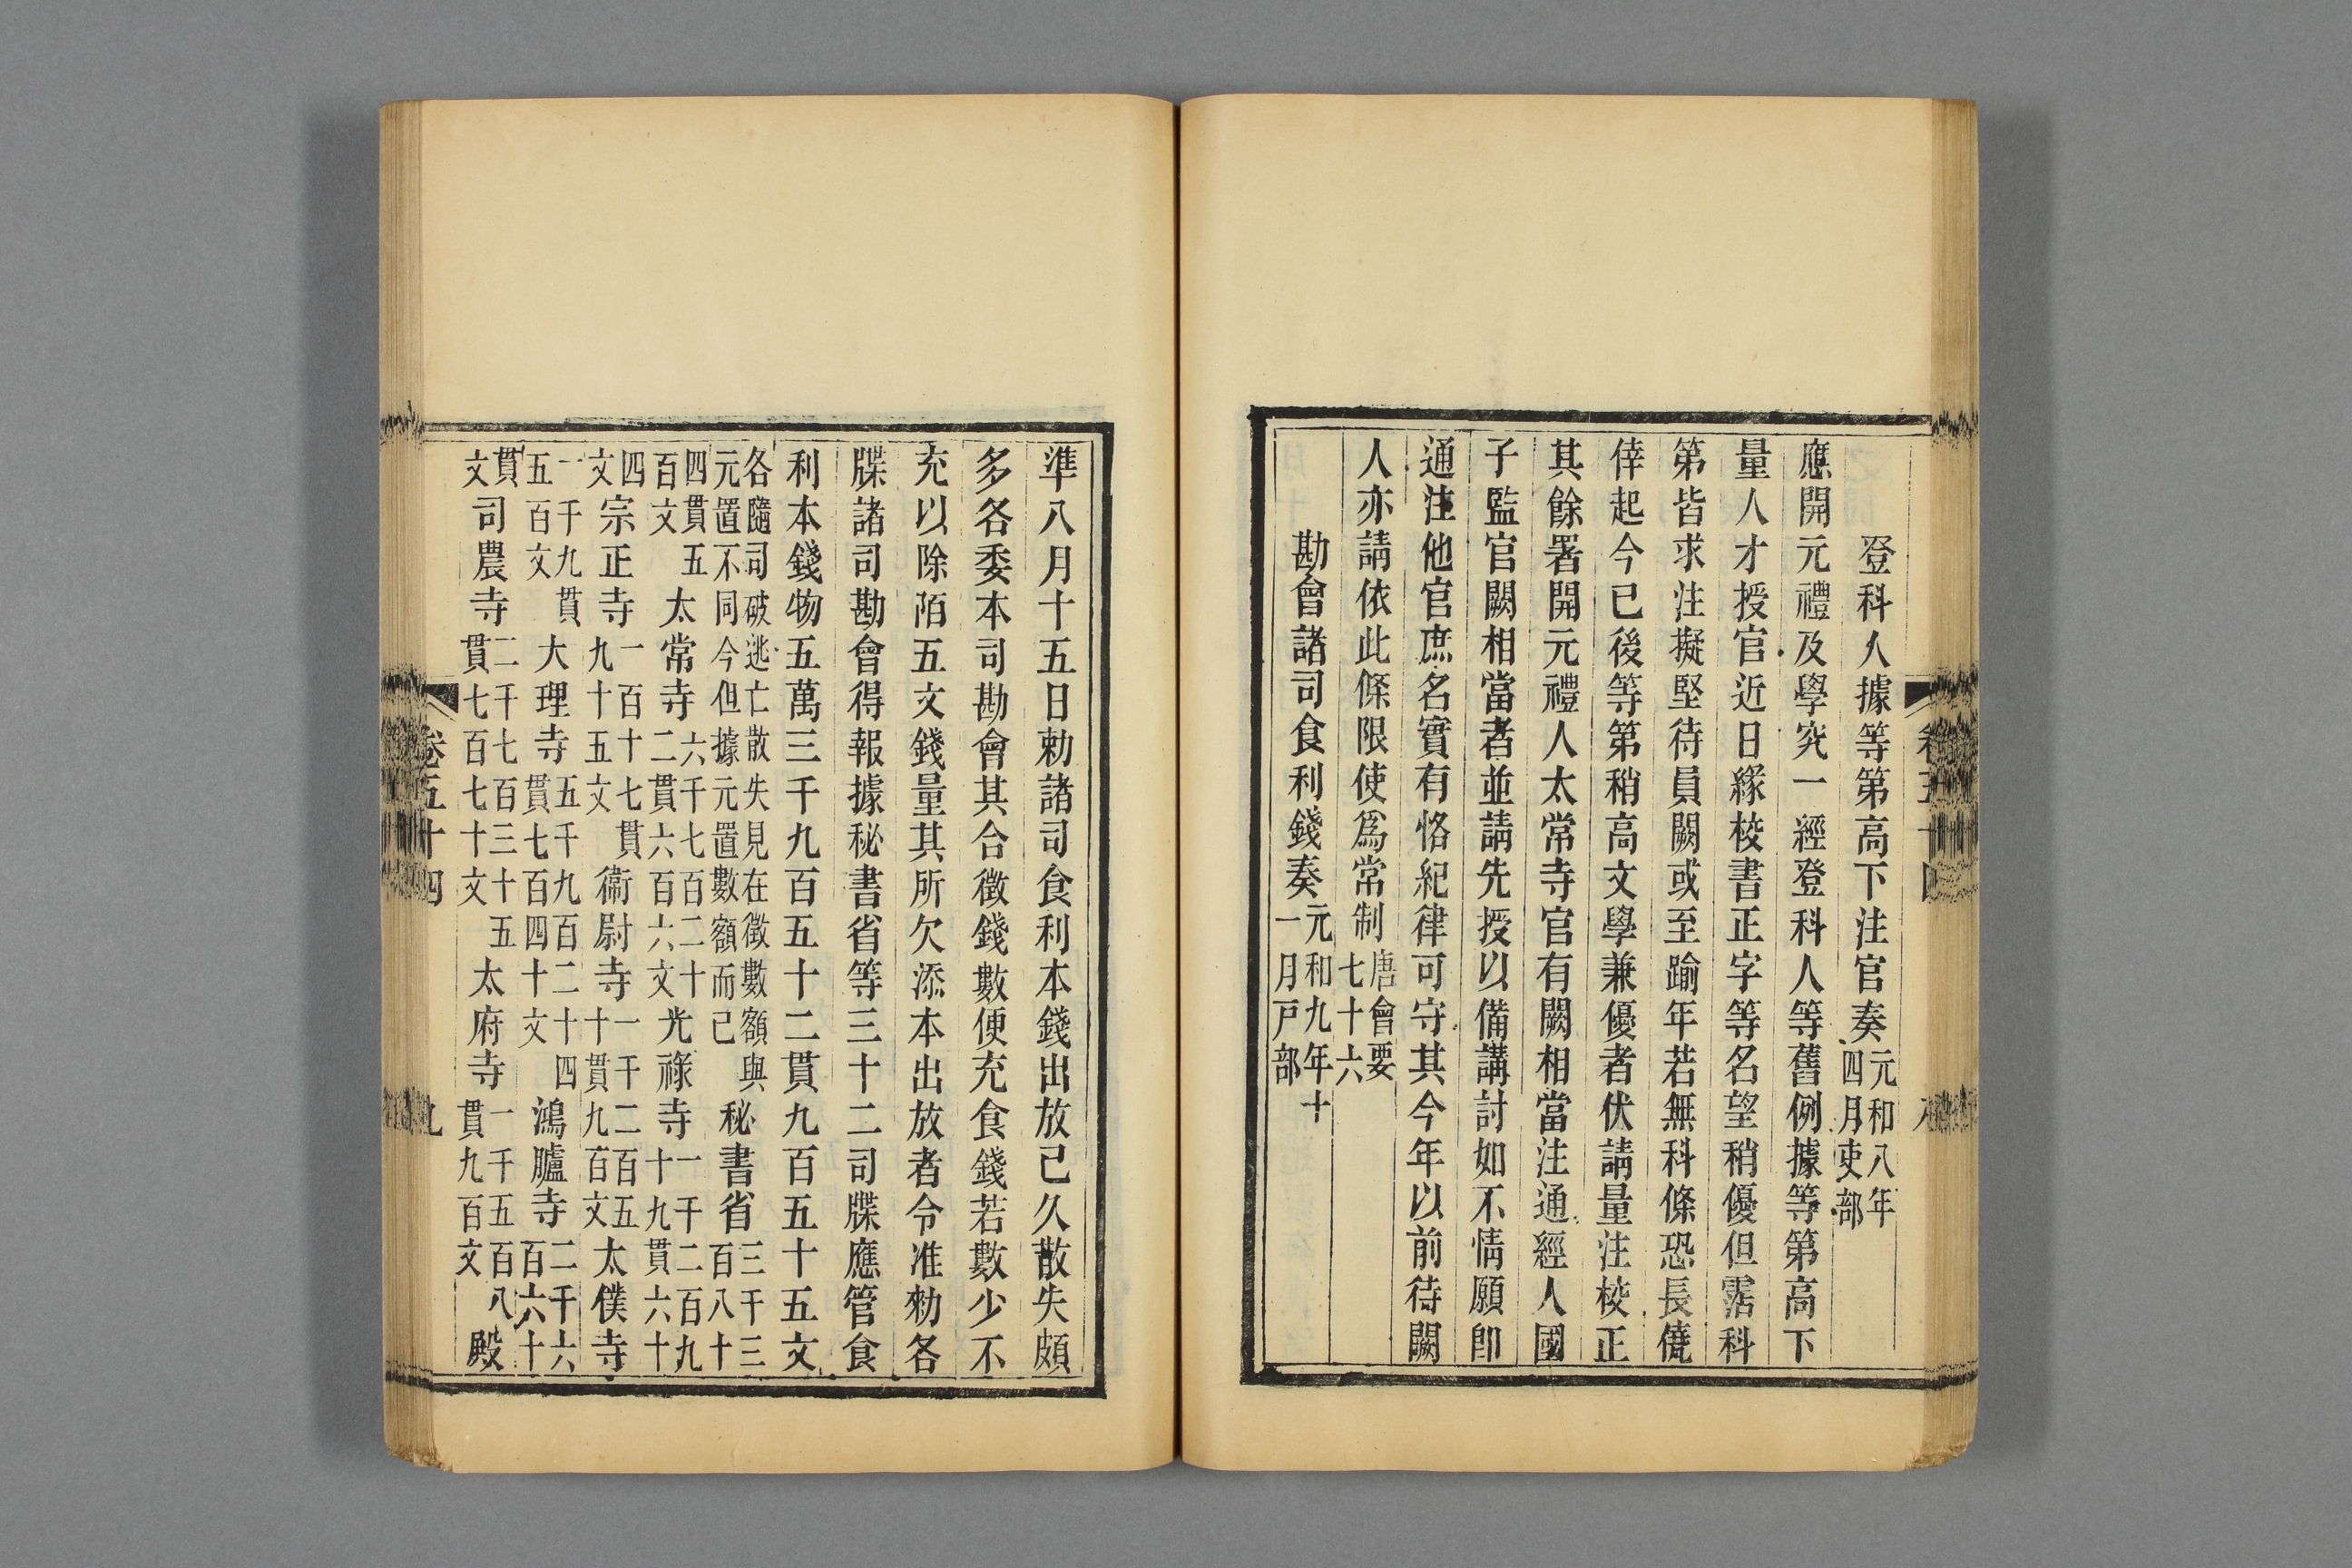 登科人據等第高下注官奏元和八年四月吏部
應開元禮及學究一經登科人等舊例據等第高下
量人才授官近日緣校書正字等名望稍優但霑科
第皆求注擬堅待員闕或至踰年若無科條恐長僥
倖起今已後等第稍高文學兼優者伏請量注校正
其餘署開元禮人太常寺官有闕相當注通經人國
子監官闕相當者並請先授以備講討如不情願即
通注他官庶名實有恪紀律可守其今年以前待闕
人亦請依此條限使為常制唐會要七十六
勘會諸司食利錢奏元和九年十一月戸部
準八月十五日勅諸司食利本錢出放已久散失頗
多各委本司勘會其合徵錢數便充食錢若數少不
充以除陌五文錢量其所欠添本出放者令准勑各
牒諸司勘會得報據秘書省等三十二司牒應管食
利本錢物五萬三千九百五十二貫九百五十五文
各隨司破逃亡散失見在徵數額與元置不同今但據元置數額而已秘書省三千三百八十
四貫五百文太常寺六千七百二十二貫六百六文光祿寺一千二百九十九貫六十
四文宗正寺一百十七貫九十五文衞尉寺一千二百五十貫九百文太僕寺
一千九貫五百文大理寺五千九百二十四貫七百四十文鴻臚寺二千六百六十
貫文司農寺二千七百三十五貫七百七十文太府寺一千五百八貫九百文殿
卷五十四
九